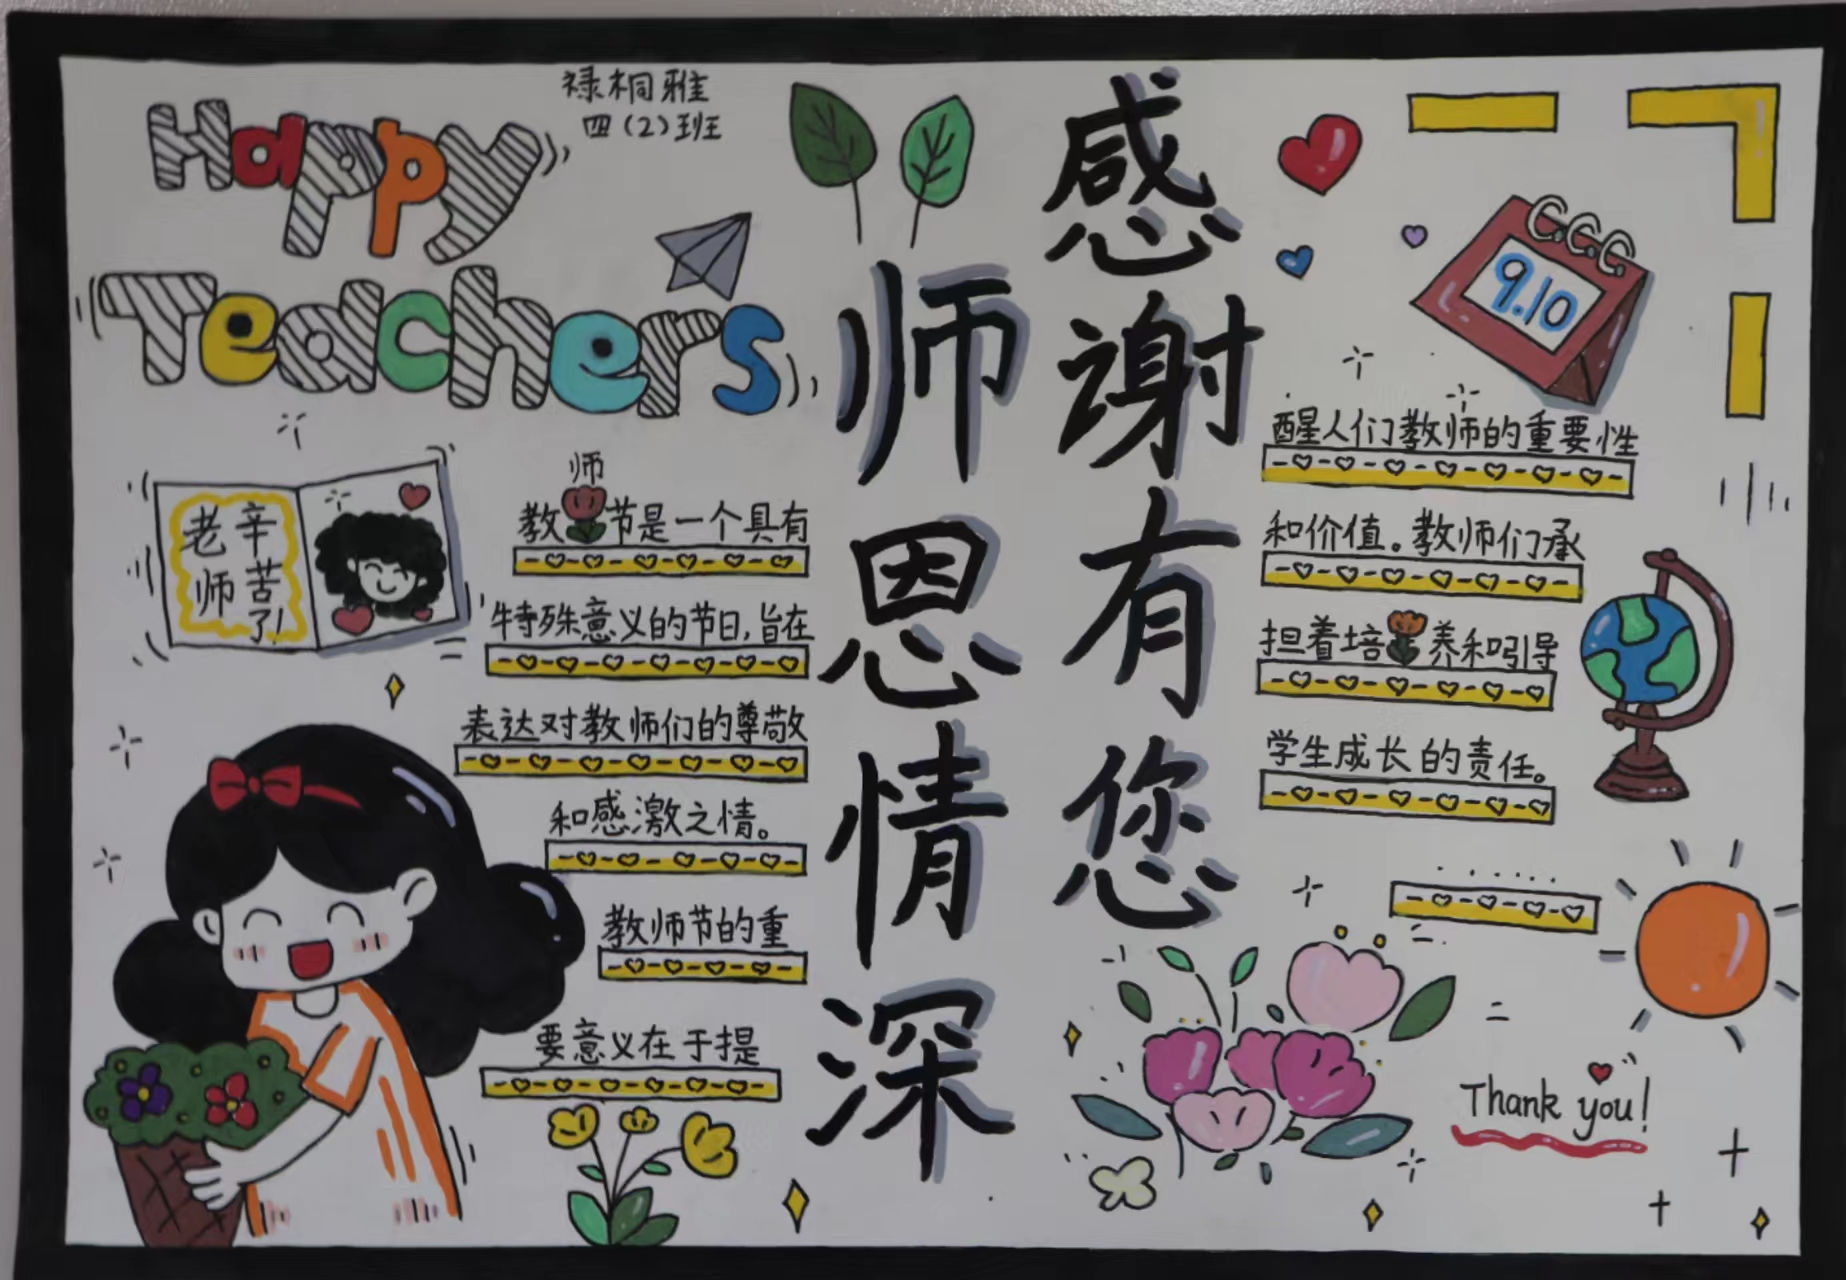 禄桐雅
四(2)班
Happy
Teachers
感谢有您
师恩情深
9.10
老师
辛苦了!
师
教节是一个具有
特殊意义的节日,旨在
表达对教师们的尊敬
和感激之情。
教师节的重
要意义在于提
醒人们教师的重要性
和价值。教师们承
担着培养和引导
学生成长的责任。
......
Thank you!